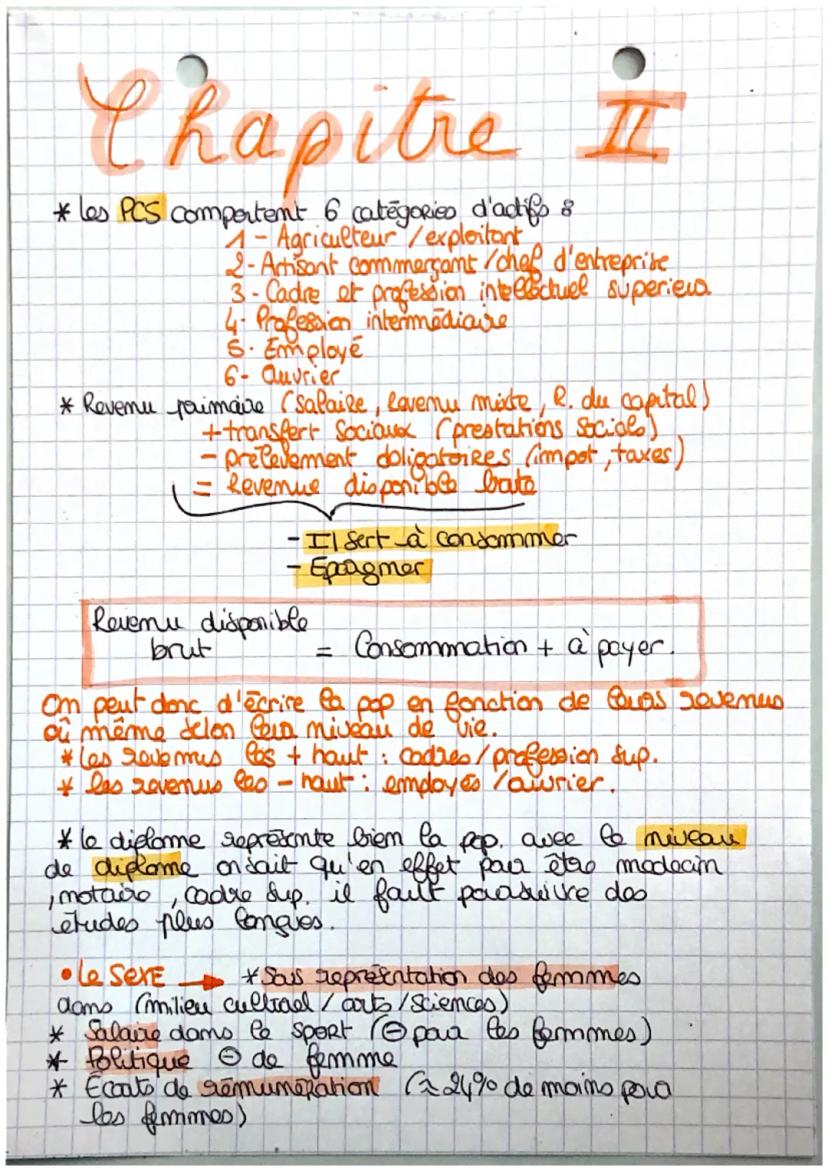 Chapitre II
* les PCS comportent 6 catégories d'actifs :
1 - Agriculteur / exploitant
2 - Artisant commerçant / chef d'entreprise
3 - Cadre et profession intellectuel superieur
4 - Profession intermédiaire
5 - Employé
6 - Ouvrier
* Revenu primaire (Salaire, Revenu mixte, R. du capital)
+ transfert Sociaux (prestations Sociales)
- prélevement obligatoires (impot, taxes)
= Revenue disponible brute
- Il sert à consommer
- Epargner
Revenu disponible
brut = Consommation + à payer.
On peut donc d'écrire la pop en fonction de leurs revenus
où même selon leur niveau de vie.
* Les revenus les + haut : cadres / profession sup.
* les revenus les - haut : employés / ouvrier.
* le diplome représente bien la pop. avec le niveau
de diplome on sait qu'en effet pour être medecin
, notaire, cadre sup. il fault poursuivre des
études plus longues.
• Le SEXE → * Sous représentation des femmes
dans (milieu cultrael / arts / sciences)
* Salaire dans le sport (⊖ pour les femmes)
* Politique ⊖ de femme
* Écarts de rémunération (≈ 24% de moins pour
les femmes)